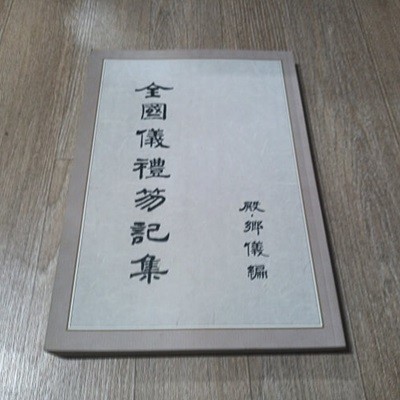 全國儀禮笏記集
殿·鄉儀編